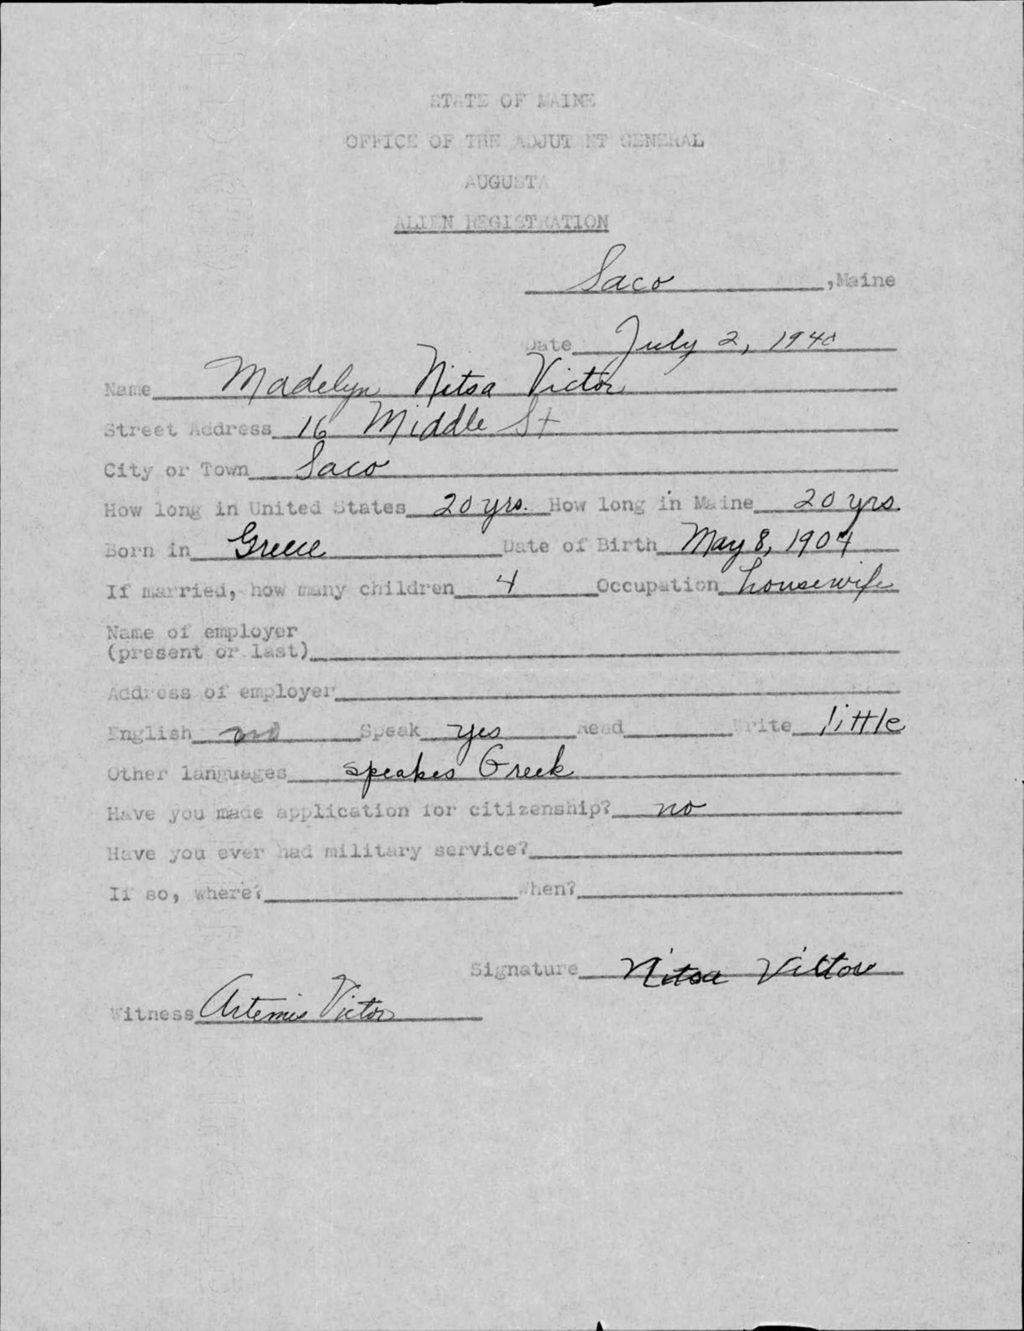 STATE OF MAINE
OFFICE OF THE ADJUTANT GENERAL
AUGUSTA
ALIEN REGISTRATION
Saco, Maine
Date July 2, 1940
Name Madelyn Nitsa Victor
Street Address 16 Middle St
City or Town Saco
How long in United States 20 yrs. How long in Maine 20 yrs.
Born in Greece Date of Birth May 8, 1904
If married, how many children 4 Occupation housewife
Name of employer
(present or last)
Address of employer
English Speak yes Read Write little
Other languages speakes Greek
Have you made application for citizenship? no
Have you ever had military service?
If so, where? When?
Signature Nitsa Victor
Witness Artemis Victor